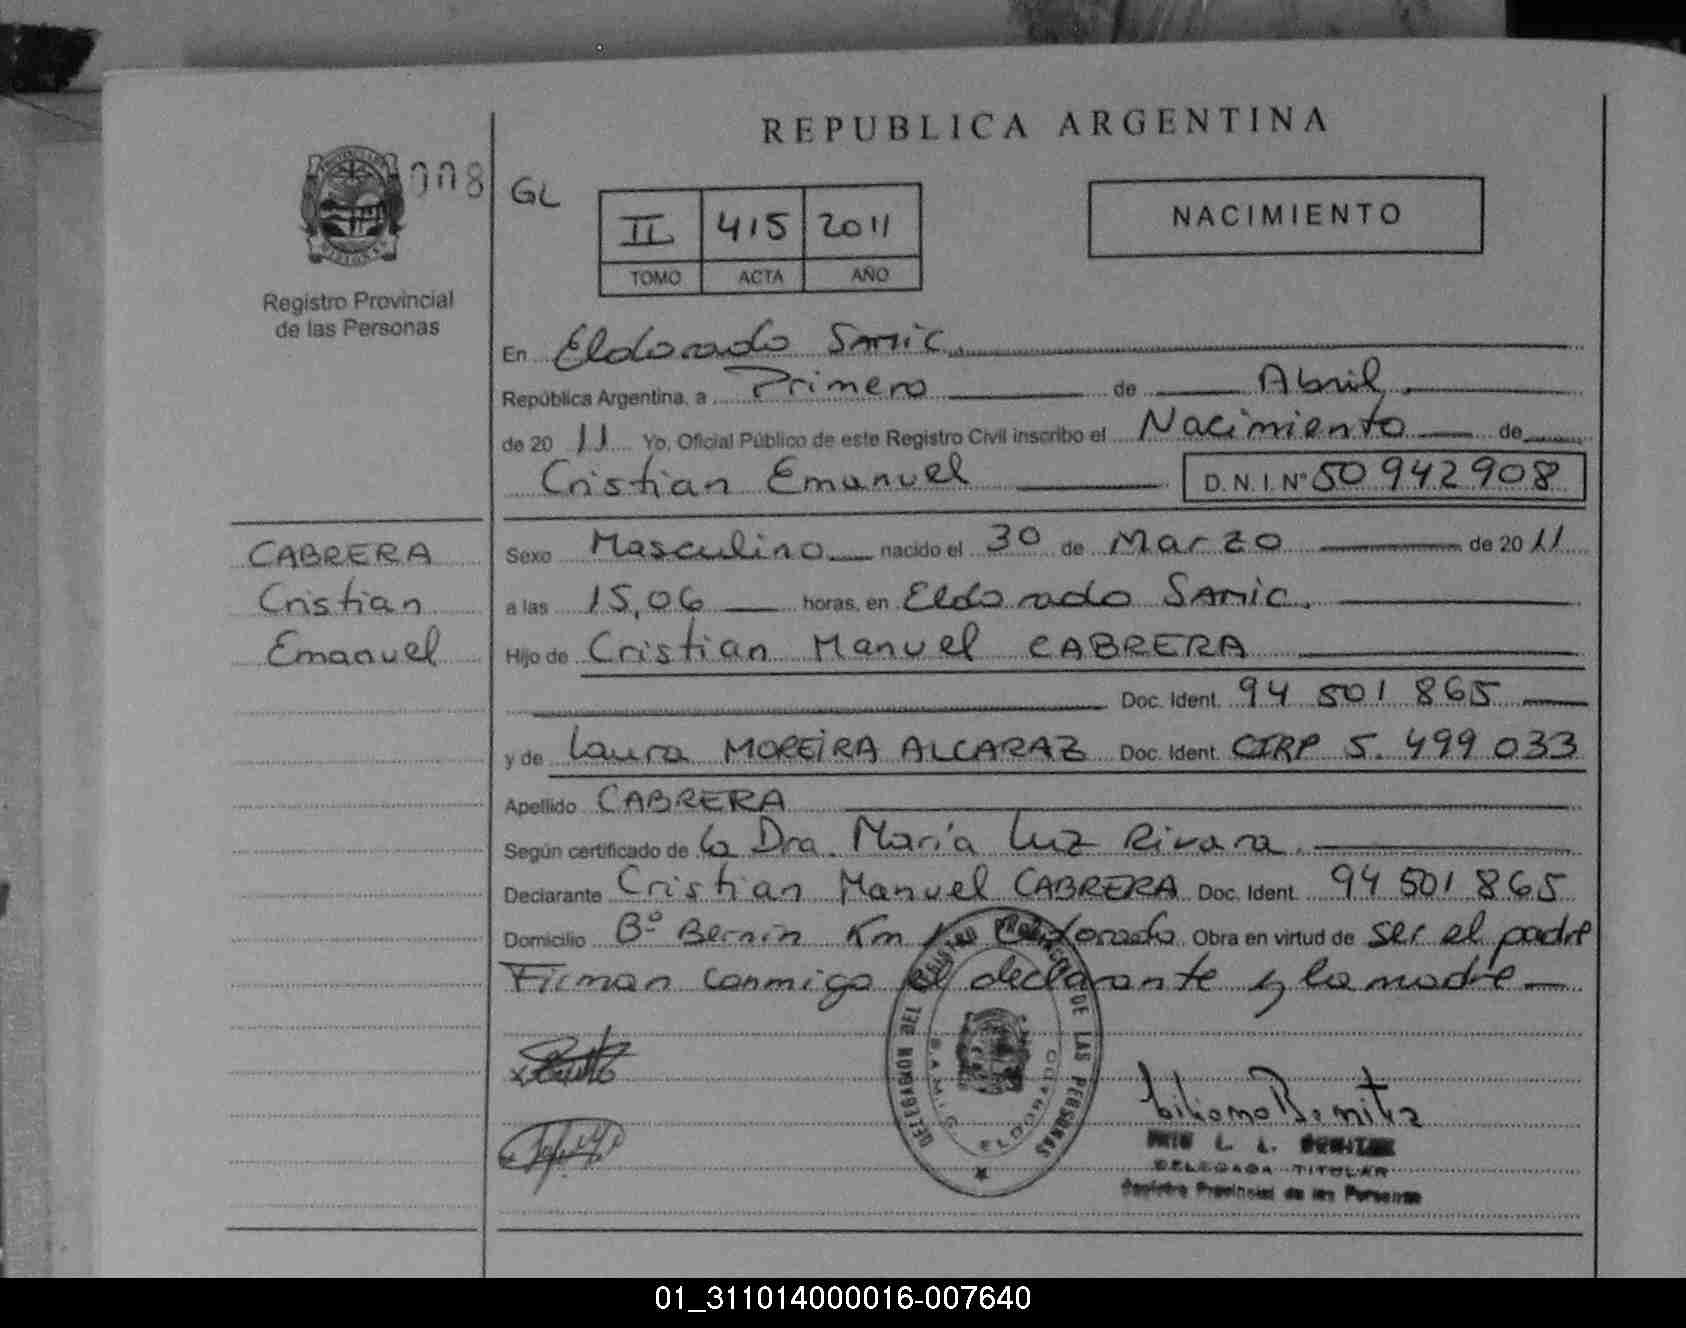 REPUBLICA ARGENTINA
008
GL
II 415 2011
TOMO ACTA AÑO
NACIMIENTO
Registro Provincial
de las Personas
En Eldorado Samic
República Argentina, a Primero de Abril
de 2011 Yo, Oficial Público de este Registro Civil inscribo el Nacimiento de
Cristian Emanuel D.N.I. Nº 50 942 908
CABRERA
Cristian
Emanuel
Sexo Masculino nacido el 30 de Marzo de 2011
a las 15,06 horas, en Eldorado Samic.
Hijo de Cristian Manuel CABRERA
Doc. Ident. 94 501 865
y de Laura MOREIRA ALCARAZ Doc. Ident. CIRP 5.499 033
Apellido CABRERA
Según certificado de la Dra. María Luz Rivara.
Declarante Cristian Manuel CABRERA Doc. Ident. 94 501 865
Domicilio Bº Bernin Km Eldorado Obra en virtud de ser el padre
Firman conmigo el declarante y la madre
DELEGACION DEL REGISTRO PROVINCIAL DE LAS PERSONAS
S.A.M.I.C. ELDORADO
Liliana Benitez
L. L. BENITEZ
DELEGADA TITULAR
Registro Provincial de las Personas
01_311014000016-007640